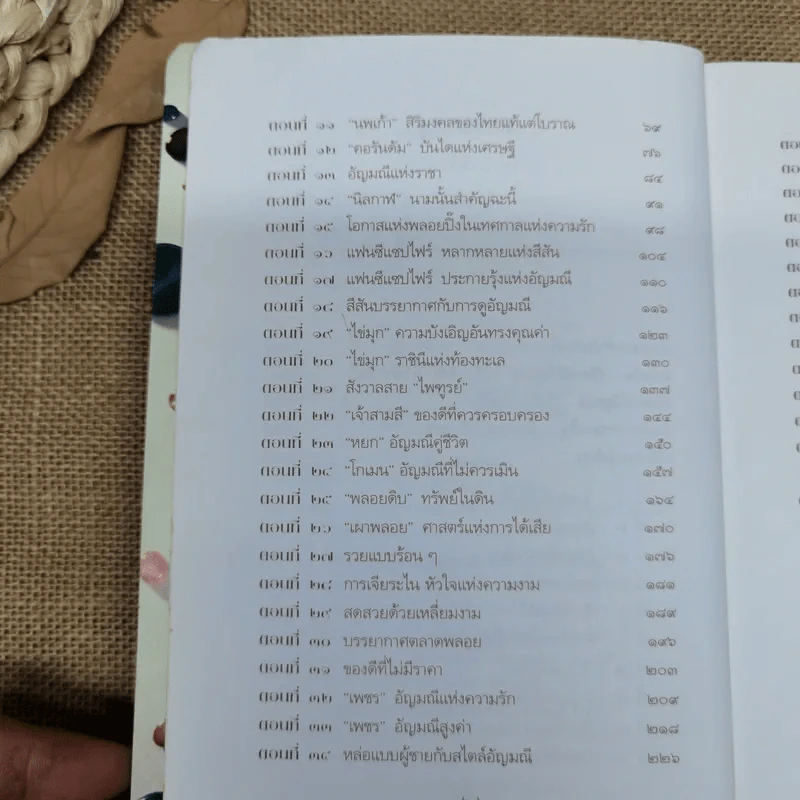 ตอนที่ ๑๑ "นพเก้า" สิริมงคลของไทยแท้แต่โบราณ ๖๙
ตอนที่ ๑๒ "คอรันดัม" บันไดแห่งเศรษฐี ๗๖
ตอนที่ ๑๓ อัญมณีแห่งราชา ๘๔
ตอนที่ ๑๔ "นิลกาฬ" นามนั้นสำคัญฉะนี้ ๙๑
ตอนที่ ๑๕ โอกาสแห่งพลอยปิ๊งในเทศกาลแห่งความรัก ๙๘
ตอนที่ ๑๖ แฟนซีแซปไฟร์ หลากหลายแห่งสีสัน ๑๐๔
ตอนที่ ๑๗ แฟนซีแซปไฟร์ ประกายรุ้งแห่งอัญมณี ๑๑๐
ตอนที่ ๑๘ สีสันบรรยากาศกับการดูอัญมณี ๑๑๖
ตอนที่ ๑๙ "ไข่มุก" ความบังเอิญอันทรงคุณค่า ๑๒๓
ตอนที่ ๒๐ "ไข่มุก" ราชินีแห่งท้องทะเล ๑๓๐
ตอนที่ ๒๑ สังวาลสาย "ไพฑูรย์" ๑๓๗
ตอนที่ ๒๒ "เจ้าสามสี" ของดีที่ควรครอบครอง ๑๔๔
ตอนที่ ๒๓ "หยก" อัญมณีคู่ชีวิต ๑๕๐
ตอนที่ ๒๔ "โกเมน" อัญมณีที่ไม่ควรเมิน ๑๕๗
ตอนที่ ๒๕ "พลอยดิบ" ทรัพย์ในดิน ๑๖๔
ตอนที่ ๒๖ "เผาพลอย" ศาสตร์แห่งการได้เสีย ๑๗๐
ตอนที่ ๒๗ รวยแบบร้อน ๆ ๑๗๖
ตอนที่ ๒๘ การเจียระไน หัวใจแห่งความงาม ๑๘๑
ตอนที่ ๒๙ สดสวยด้วยเหลี่ยมงาม ๑๘๙
ตอนที่ ๓๐ บรรยากาศตลาดพลอย ๑๙๖
ตอนที่ ๓๑ ของดีที่ไม่มีราคา ๒๐๓
ตอนที่ ๓๒ "เพชร" อัญมณีแห่งความรัก ๒๐๙
ตอนที่ ๓๓ "เพชร" อัญมณีสูงค่า ๒๑๘
ตอนที่ ๓๔ หล่อแบบผู้ชายกับสไตล์อัญมณี ๒๒๖